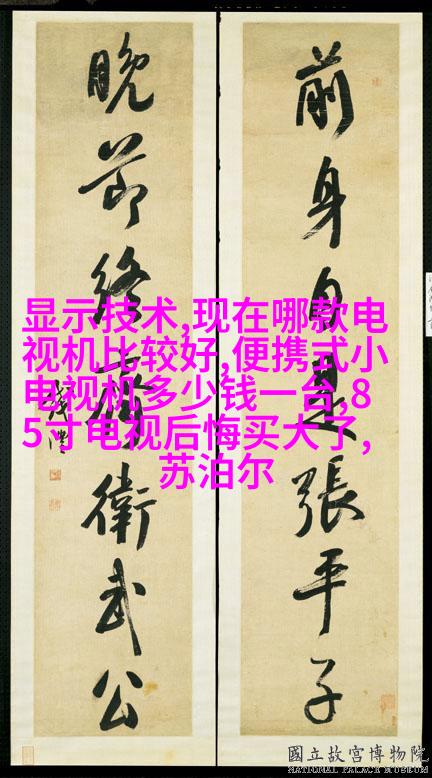 前身自是張平子
晚節終衛武公
显示技术,现在哪款电
视机比较好,便携式小
电视机多少钱一台,8
5寸电视后悔买大了,
苏泊尔
國立故宮博物院
NATIONAL PALACE MUSEUM